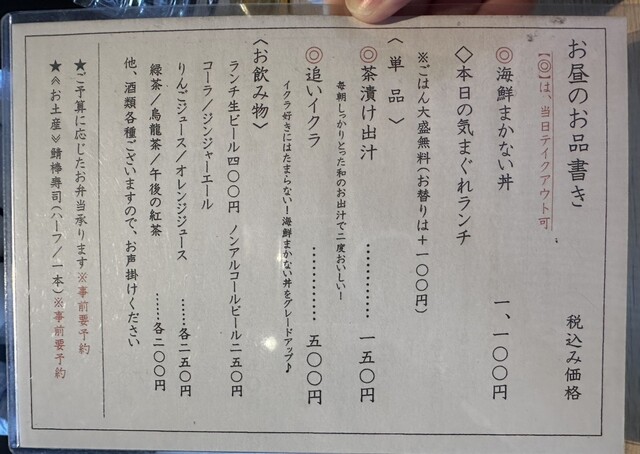 お昼のお品書き 税込み価格
【◎】は、当日テイクアウト可
◎海鮮まかない丼 一、一〇〇円
◇本日の気まぐれランチ
※ごはん大盛無料(お替りは+一〇〇円)
〈単品〉
◎茶漬け出汁 ………… 一五〇円
毎朝しっかりとった和のお出汁で二度おいしい!
◎追いイクラ ………… 五〇〇円
イクラ好きにはたまらない!海鮮まかない丼をグレードアップ♪
〈お飲み物〉
ランチ生ビール四〇〇円 ノンアルコールビール二五〇円
コーラ/ジンジャーエール
りんごジュース/オレンジジュース ……各二五〇円
緑茶/烏龍茶/午後の紅茶 ……各二〇〇円
他、酒類各種ございますので、お声掛けください
★ご予算に応じたお弁当承ります※事前要予約
★《お土産》鯖棒寿司(ハーフ/一本)※事前要予約